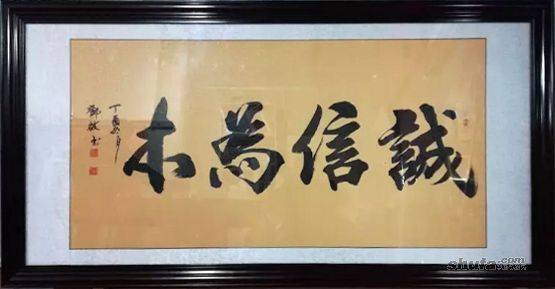 誠信為本
丁酉
shufa.com